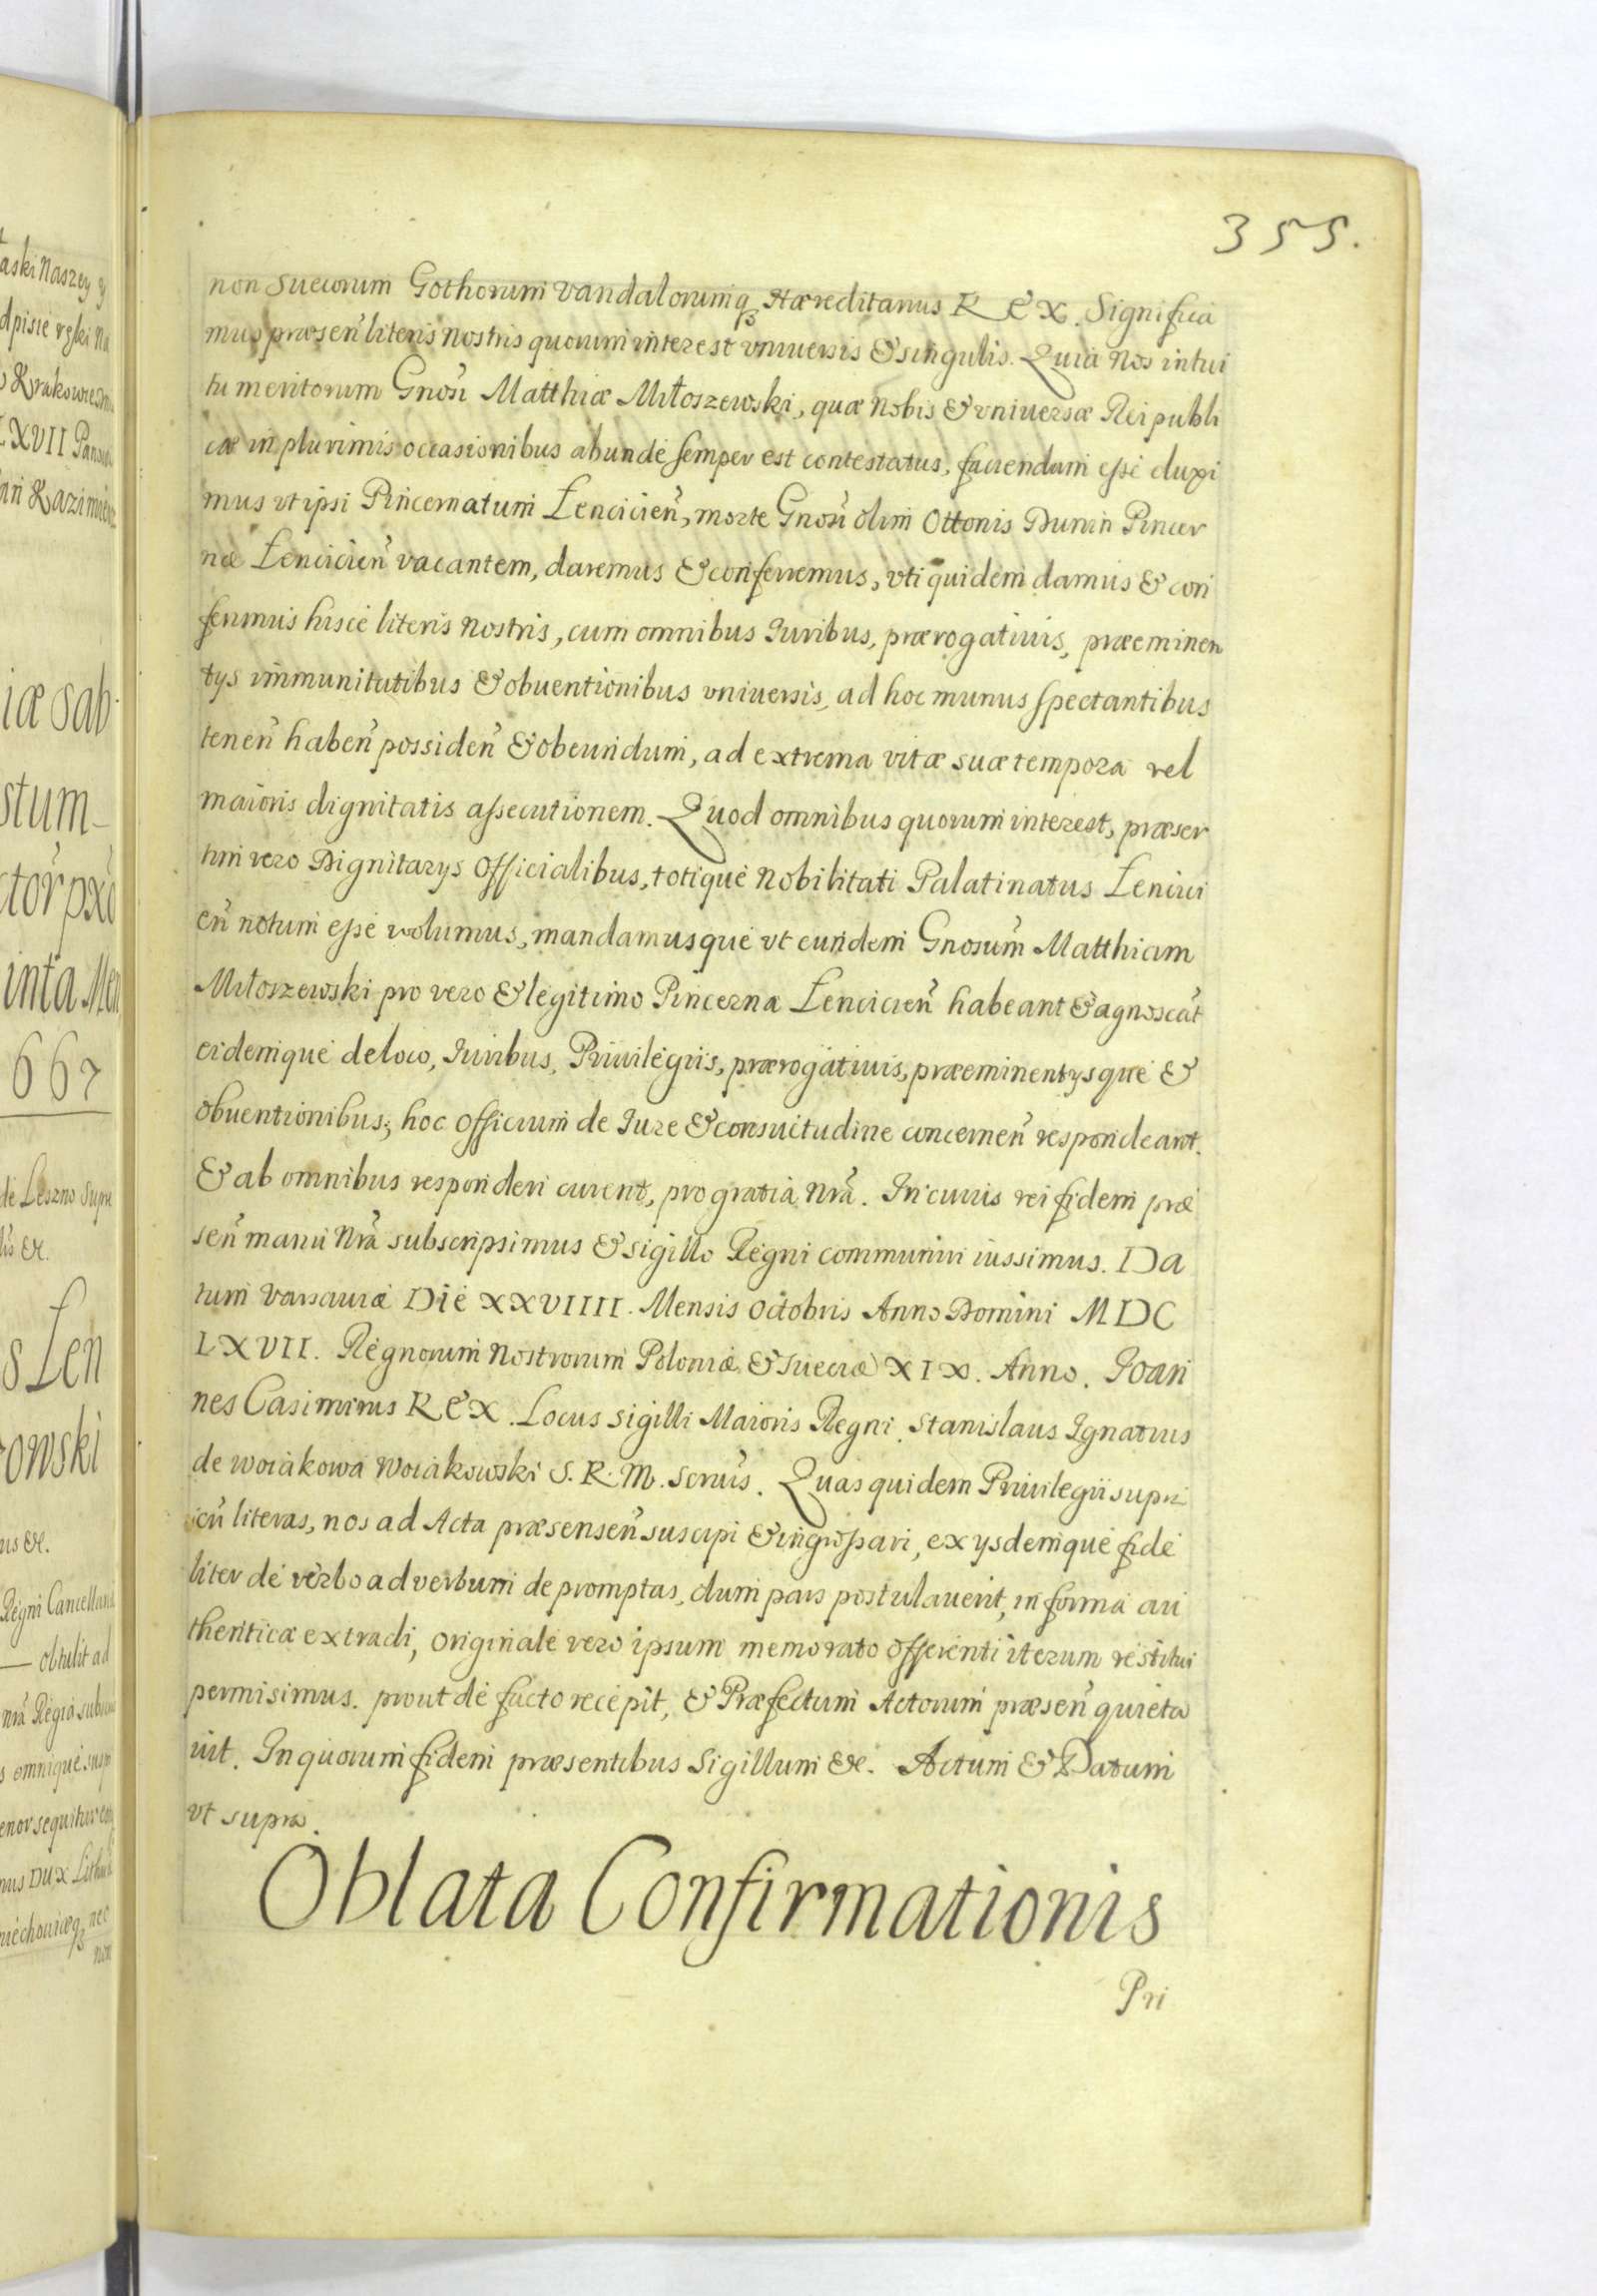 355.
non Suecorum Gothorum Vandalorumq3 Hæreditarius REX. Significa
mus præsen̄ literis nostris quorum interest vniuersis & singulis. Quia Nos intui
tu meritorum Gnosi Matthiæ Miłoszewski, quæ Nobis & vniuersæ Reipubli
cæ in plurimis occasionibus abunde semper est contestatus, faciendum esse duxi
mus vt ipsi Pincernatum Lencicien̄, morte Gnosi olim Ottonis Dunin Pincer
næ Lencicien̄ vacantem, daremus & conferremus, vti quidem damus & con
ferimus hisce literis nostris, cum omnibus Iuribus, prærogatiuis, præeminen
tys immunitatibus & obuentionibus vniuersis, ad hoc munus spectantibus
tenen̄ haben̄ possiden̄ & obeundum, ad extrema vitæ suæ tempora vel
maioris dignitatis assecutionem. Quod omnibus quorum interest, præser
tim vero Dignitarys Officialibus, totique Nobilitati Palatinatus Lencici
en̄ notum esse volumus, mandamusque vt eundem Gnosum Matthiam
Miłoszewski pro vero & legitimo Pincerna Lencicien̄ habeant & agnoscāt
eidemque de loco, Iuribus, Priuilegiis, prærogatiuis, præeminentysque &
obuentionibus; hoc officium de Iure & consuetudine concernen̄ respondeant.
& ab omnibus responderi curent, pro gratia nrā. In cuius rei fidem præ
sen̄ manu Nrā subscripsimus & sigillo Regni communiri iussimus. Da
tum Varsauiæ Die XXVIIII. Mensis Octobris Anno Domini MDC
LXVII. Regnorum Nostrorum Poloniæ & Sueciæ XIX. Anno. Ioan
nes Casimirus REX. Locus Sigilli Maioris Regni. Stanislaus Ignatius
de Woiakowa Woiakowski S. R. M. Scrius. Quas quidem Priuilegii supri
cū literas, nos ad Acta præsensen̄ suscipi & ingrossari, exysdemque fide
liter de verbo ad verbum depromptas, dum pars postulauerit, in forma au
thentica extradi, originale vero ipsum memorato offerenti iterum restitui
permisimus. prout de facto recepit, & Præfectum Actorum præsen̄ quieta
uit. In quorum fidem præsentibus Sigillum &c. Actum & Datum
vt supra.
Oblata Confirmationis
Pri